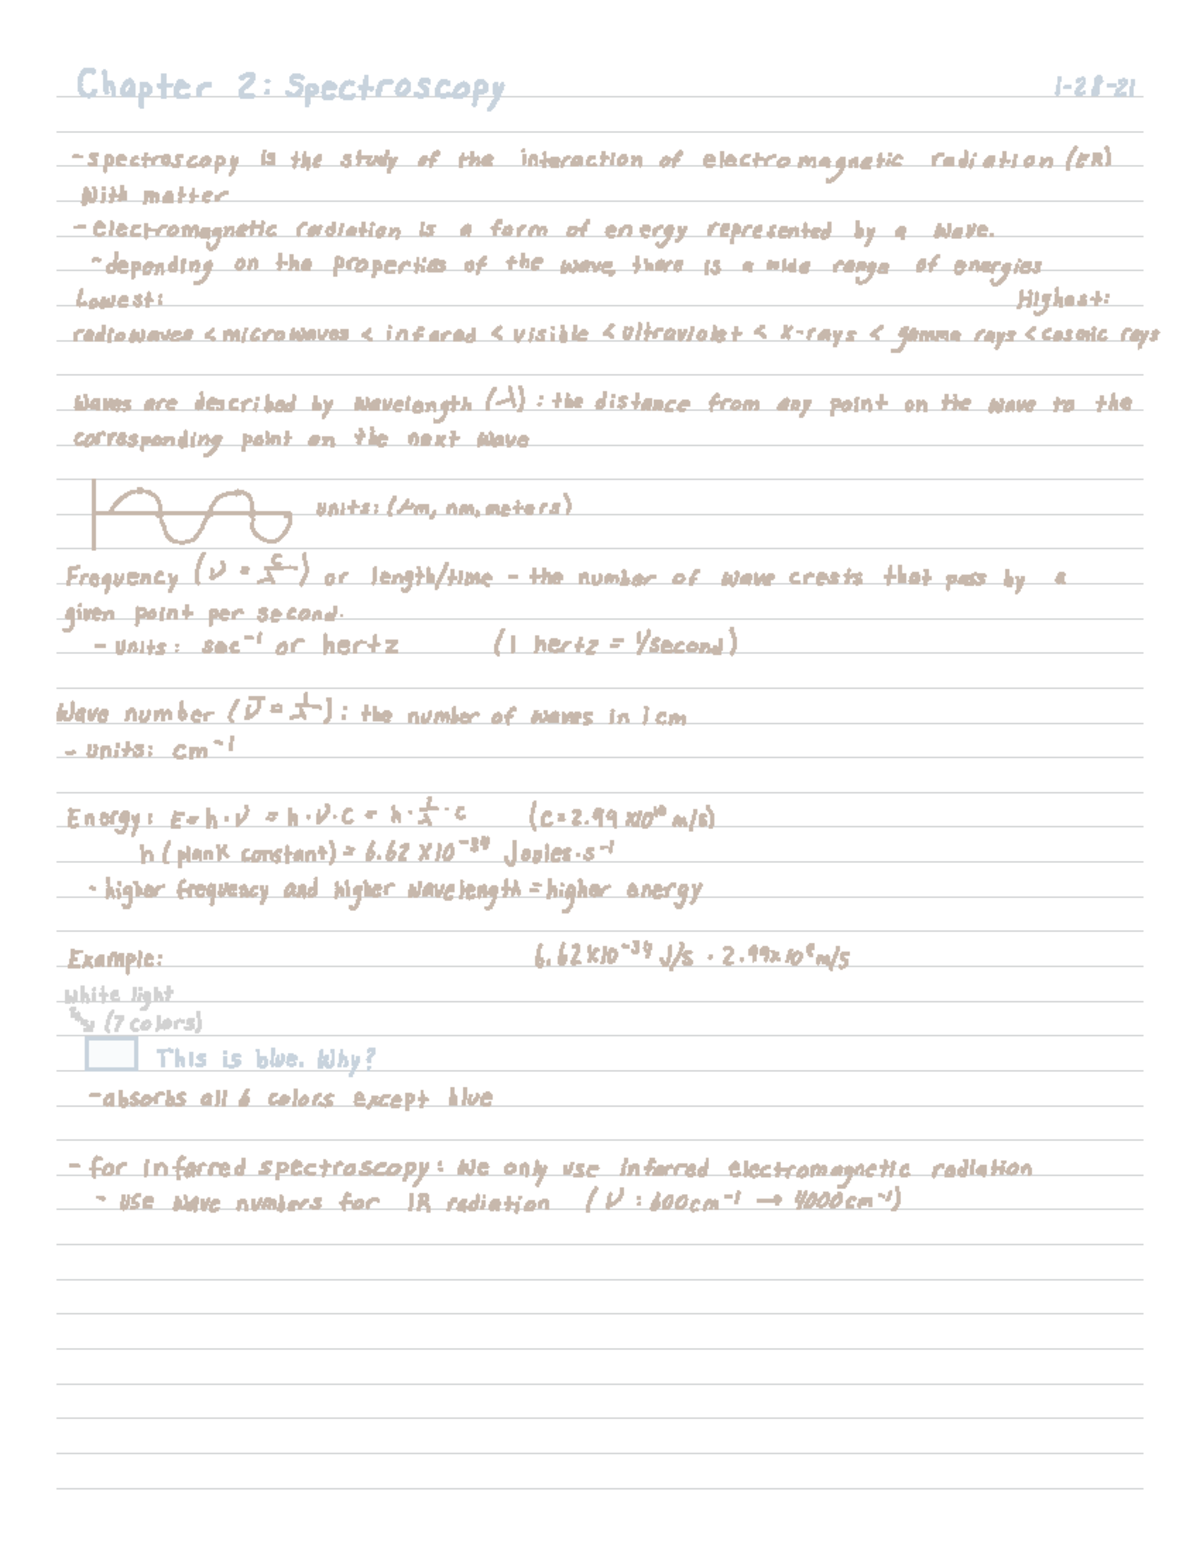 Chapter 2: Spectroscopy 1-28-21
- spectroscopy is the study of the interaction of electromagnetic radiation (ER)
with matter
- electromagnetic radiation is a form of energy represented by a wave.
- depending on the properties of the wave, there is a wide range of energies
Lowest: Highest:
radiowaves < microwaves < infared < visible < ultraviolet < x-rays < gamma rays < cosmic rays
Waves are described by wavelength (λ) : the distance from any point on the wave to the
corresponding point on the next wave
units: (μm, nm, meters)
Frequency (ν = c/λ) or length/time - the number of wave crests that pass by a
given point per second.
- units: sec⁻¹ or hertz (1 hertz = 1/second)
Wave number (ν̅ = 1/λ): the number of waves in 1 cm
- units: cm⁻¹
Energy: E = h · ν = h · ν̅ · c = h · 1/λ · c (c = 2.99 x10¹⁰ m/s)
h (plank constant) = 6.62 x10⁻³⁴ Joules · s⁻¹
- higher frequency and higher wavelength = higher energy
Example: 6.62 x10⁻³⁴ J/s · 2.99 x 10⁸ m/s
white light
(7 colors)
This is blue. Why?
- absorbs all 6 colors except blue
- for infarred spectroscopy: we only use infarred electromagnetic radiation
- use wave numbers for IR radiation (ν : 600cm⁻¹ → 4000cm⁻¹)